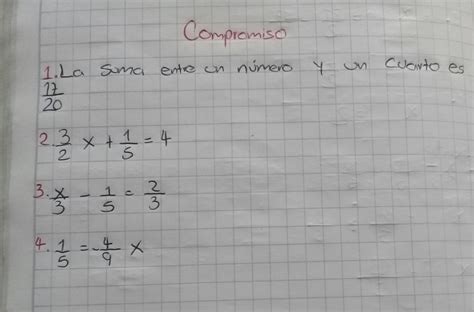 Compromiso
1. La suma entre un número y un cuarto es
17/20
2. 3/2 x + 1/5 = 4
3. x/3 - 1/5 = 2/3
4. 1/5 = -4/9 x